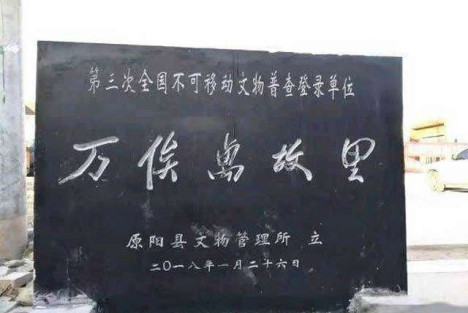 第三次全国不可移动文物普查登录单位
万俟卨故里
原阳县文物管理所 立
二〇一八年一月二十六日